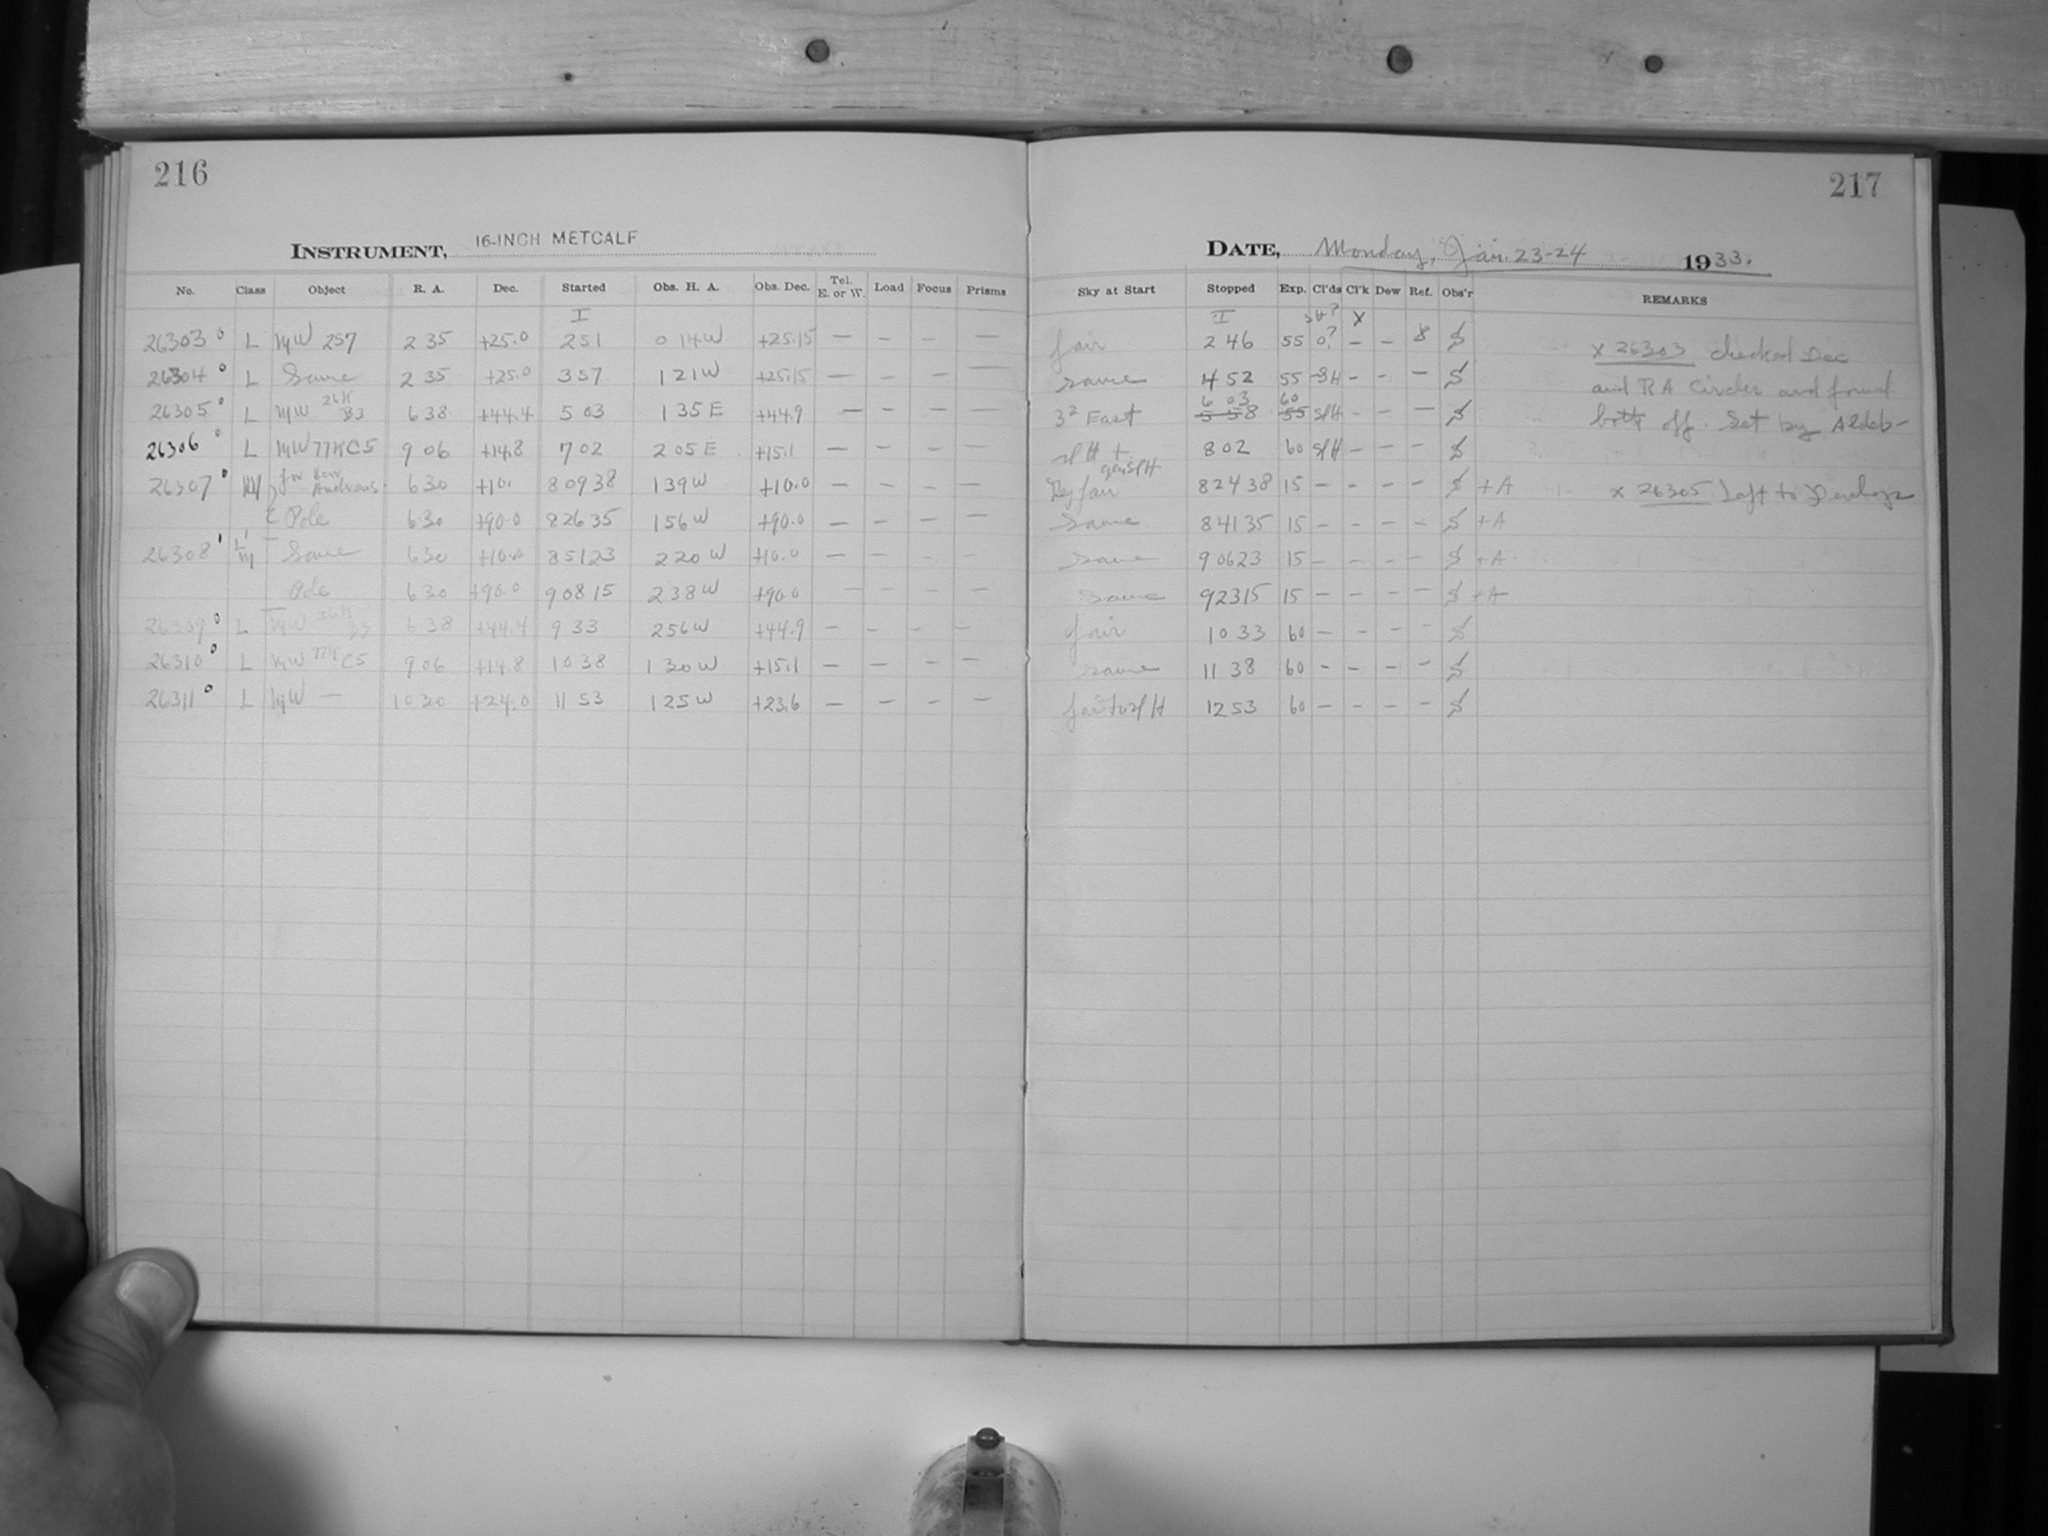 216
INSTRUMENT, 16-INCH METCALF
No. Class Object R. A. Dec. Started Obs. H. A. Obs. Dec. Tel. E. or W. Load Focus Prisms
I
26303 0 L MW 257 2 35 +25.0 2 51 0 14 W +25.15 — — — —
26304 0 L Same 2 35 +25.0 3 57 1 21 W +25.15 — — — —
26305 0 L MW 26K B3 6 38 +44.4 5 03 1 35 E +44.9 — — — —
26306 0 L MW 77K C5 9 06 +14.8 7 02 2 05 E +15.1 — — — —
26307 0 for Andrews 6 30 +10. 8 09 38 1 39 W +10.0 — — — —
Pole 6 30 +90.0 8 26 35 1 56 W +90.0 — — — —
26308 Same 6 30 +10.0 8 51 23 2 20 W +10.0 — — — —
Pole 6 30 +90.0 9 08 15 2 38 W +90.0 — — — —
26309 0 L MW 26K B3 6 38 +44.4 9 33 2 56 W +44.9 — — — —
26310 0 L MW 77K C5 9 06 +14.8 10 38 1 30 W +15.1 — — — —
26311 0 L MW — 10 30 +24.0 11 53 1 25 W +23.6 — — — —
217
DATE, Monday, Jan. 23-24 1933.
Sky at Start Stopped Exp. Cl'ds Cl'k Dew Ref. Obs'r REMARKS
I SH? X
fair 2 46 55 0? — — 8 S x 26303 checked Dec
same 4 52 55 SH — — — S and RA Circles and found
3² East 6 03 5 58 60 55 SlH — — — S both off. Set by Aldeb-
SlH + 8 02 60 SlH — — — S
fair 8 24 38 15 — — — — S + A x 26305 Left to Develop
Same 8 41 35 15 — — — — S + A
same 9 06 23 15 — — — — S + A
Same 9 23 15 15 — — — — S + A
fair 10 33 60 — — — — S
same 11 38 60 — — — — S
fair to SlH 12 53 60 — — — — S